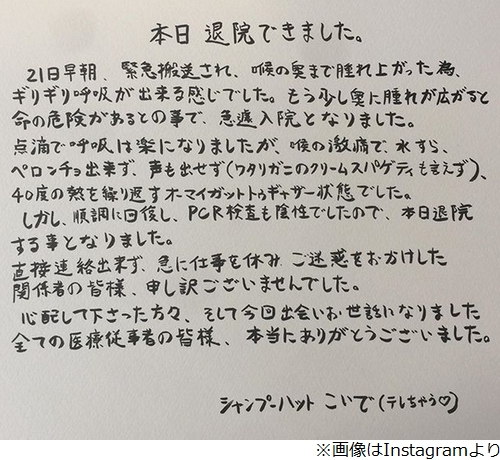 本日退院できました。
21日早朝、緊急搬送され、喉の奥まで腫れ上がった為、
ギリギリ呼吸が出来る感じでした。もう少し奥に腫れが広がると
命の危険があるとの事で、急遽入院となりました。
点滴で呼吸は楽になりましたが、喉の激痛で、水すら、
ペロンチョ出来ず、声も出せず(ワタリガニのクリームスパゲティも言えず)、
40度の熱を繰り返すオーマイガットトゥギャザー状態でした。
しかし、順調に回復し、PCR検査も陰性でしたので、本日退院
する事となりました。
直接連絡出来ず、急に仕事を休み ご迷惑をおかけした
関係者の皆様、申し訳ございませんでした。
心配して下さった方々、そして今回出会いお世話になりました
全ての医療従事者の皆様、本当にありがとうございました。
シャンプーハット こいで(テレちゃう♡)
※画像はInstagramより